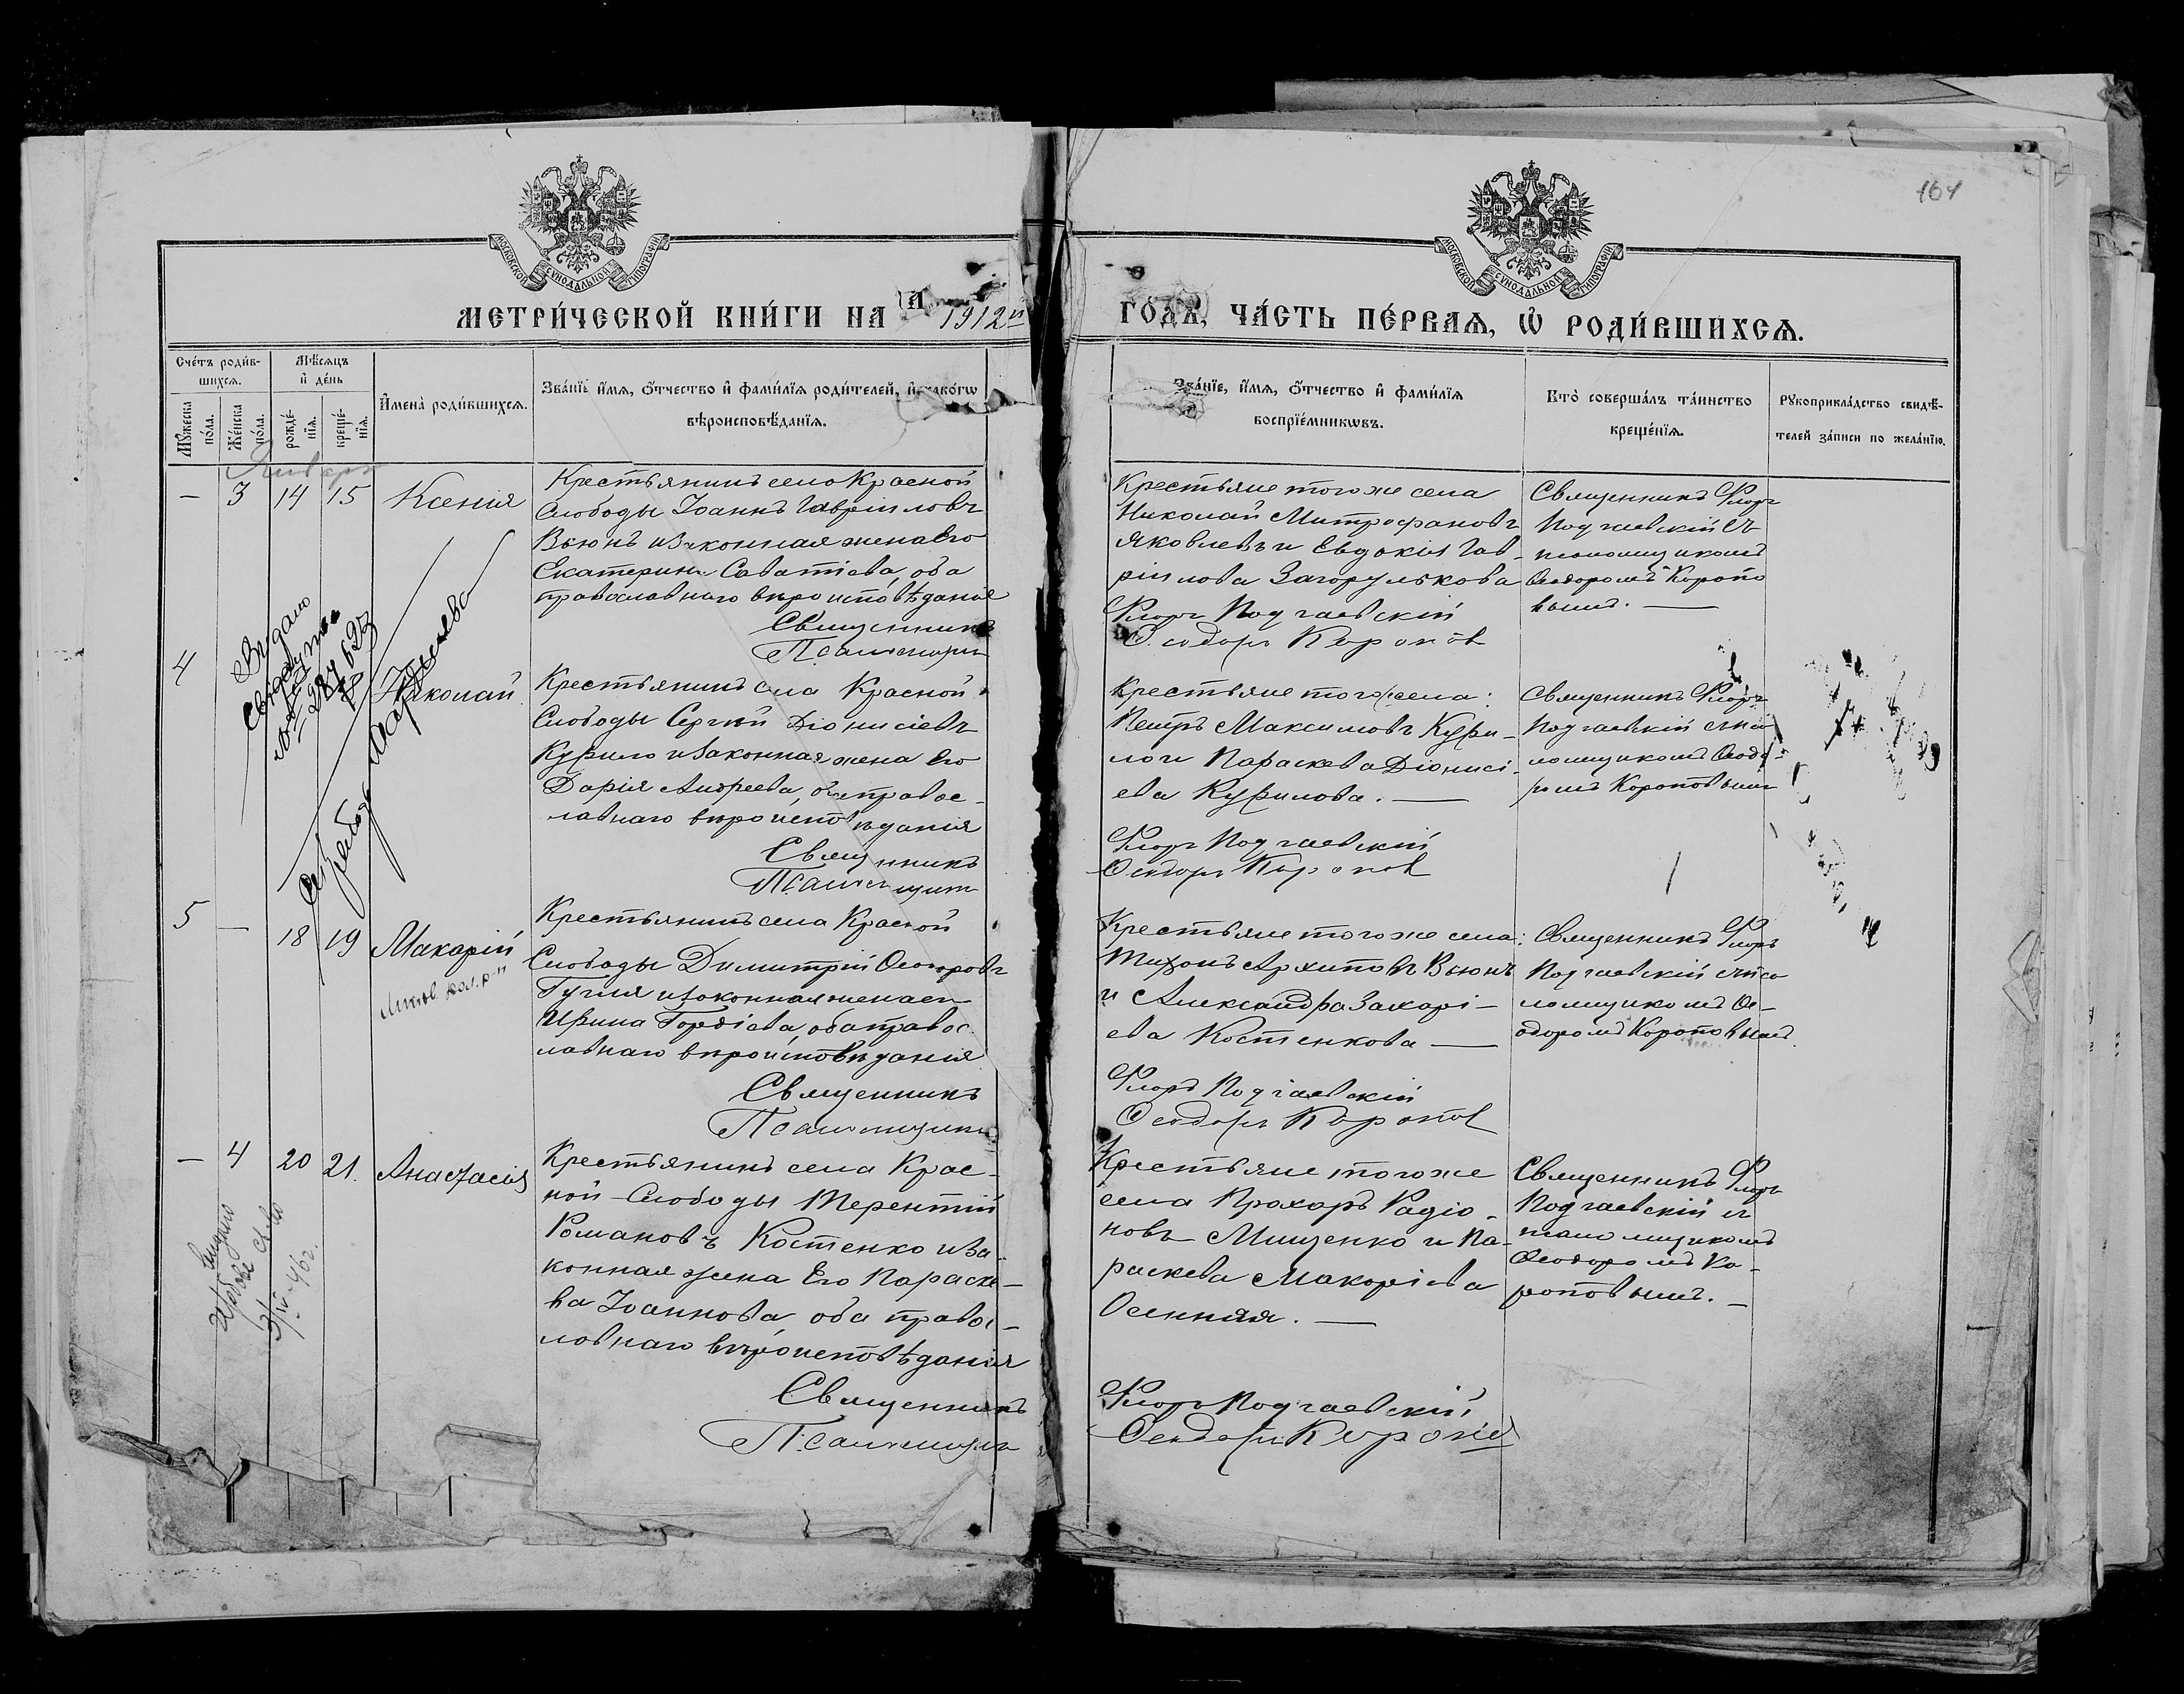 164
МОСКОВСКОЙ СУНОДАЛЬНОЙ ТИПОГРАФІИ
МОСКОВСКОЙ СУНОДАЛЬНОЙ ТИПОГРАФІИ
МЕТРИ́ЧЕСКОЙ КНИ́ГИ НА 1912й
ГО́ДЪ, ЧА́СТЬ ПЕ́РВАѦ, Ѡ҆ РОДИ́ВШИХСѦ.
Сче́тъ роди́в-
шихсѧ.
Мꙋ́жеска по́ла.
Же́нска по́ла.
Мѣ́сѧцъ
и҆ де́нь
рожде́-
нїѧ.
креще́-
нїѧ.
И҆мена̀ роди́вшихсѧ.
Зва́нїе, и҆́мѧ, ѻ҆́тчество и҆ фами́лїѧ роди́телей, и҆ како́гѡ
вѣроисповѣ́данїѧ.
Зва́нїе, и҆́мѧ, ѻ҆́тчество и҆ фами́лїѧ
воспрїе́мникѡвъ.
Кто̀ соверша́лъ та́инство
креще́нїѧ.
Рꙋкоприкла́дство свидѣ́-
телей за́писи по жела́нїю.
Январь
— 3 14 15 Ксенія
Крестьянинъ села Красной
Слободы Іоаннъ Гавріиловъ
Вьюнъ и законная жена его
Екатерина Саватіева, оба
православнаго вѣроисповѣданія
Священникъ
Псаломщикъ
Крестьяне того же села
Николай Митрофановъ
Яковлевъ и Евдокія Гав-
ріилова Загорулькова
Флоръ Подгаевскій
Ѳеодоръ Коротовъ
Священникъ Флоръ
Подгаевскій съ
псаломщикомъ
Ѳеодоромъ Корото
вымъ. —
4
Николай
Крестьянинъ села Красной
Слободы Сергѣй Діонисіевъ
Курило и законная жена его
Дарія Андреева, оба правос-
лавнаго вѣроисповѣданія
Священникъ
Псаломщикъ
Крестьяне того же села:
Петръ Максимовъ Кури-
ло и Параскева Діонисі-
ева Курилова. —
Флоръ Подгаевскій
Ѳеодоръ Коротовъ
Священникъ Флоръ
Подгаевскій съ пса
ломщикомъ Ѳеодо-
ромъ Коротовымъ
5 — 18 19 Макарій
Крестьянинъ села Красной
Слободы Димитрій Ѳеодоровъ
и законная жена его
Ирина Гордіева, оба правос
лавнаго вѣроисповѣданія
Священникъ
Псаломщикъ
Крестьяне того же села:
Тихонъ Архиповъ Вьюнъ
и Александра Захарі-
ева Костенкова —
Флоръ Подгаевскій
Ѳеодоръ Коротовъ
Священникъ Флоръ
Подгаевскій съ пса
ломщикомъ Ѳе-
одоромъ Коротовымъ.
— 4 20 21. Анастасія
Крестьянинъ села Крас-
ной-Слободы Терентій
Романовъ Костенко и за-
конная жена его Параске-
ва Іоаннова, оба правос-
лавнаго вѣроисповѣданія
Священникъ
Псаломщикъ
Крестьяне того же
села Прохоръ Радіо-
новъ Мищенко и Па-
раскева Макаріева
Осенняя. —
Флоръ Подгаевскій
Ѳеодоръ Коротовъ
Священникъ Флоръ
Подгаевскій съ
псаломщикомъ
Ѳеодоромъ Ко-
ротовымъ. —